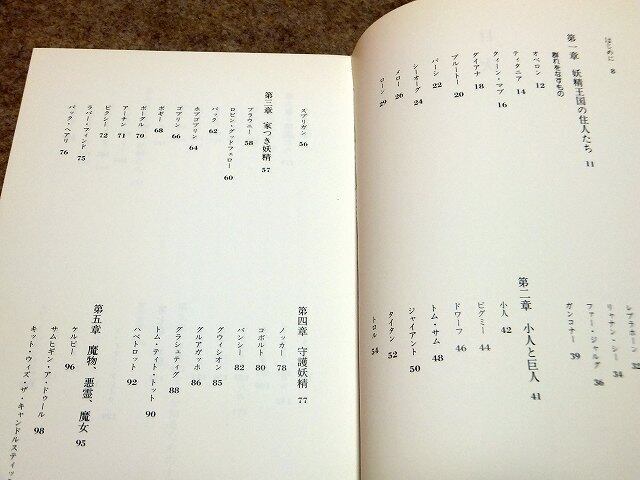 はじめに 8
第一章 妖精王国の住人たち 11
群れをなすもの
オベロン 12
ティタニア 14
クィーン・マブ 16
ダイアナ 18
プルートー 20
パーシー 22
シーオーグ 24
メロー 26
ローン 29
レプラホーン 32
リャナン・シー 34
ファー・ジャルグ 36
ガンコナー 39
第二章 小人と巨人 41
小人 42
ピグミー 44
ドワーフ 46
トム・サム 48
ジャイアント 50
タイタン 52
トロル 54
スプリガン 56
第三章 家つき妖精 57
ブラウニー 58
ロビン・グッドフェロー 60
パック 62
ホブゴブリン 64
ゴブリン 66
ボギー 68
ボーグル 70
アーナン 71
ピクシー 72
ラバー・フィンド 75
バック・ヘアリ 76
第四章 守護妖精 77
ノッカー 78
コボルト 80
バンシー 82
グウィシオン 85
グルアガッホ 86
グラシェティグ 88
トム・ティト・トット 90
ハベトロット 92
第五章 魔物、悪霊、魔女 95
ケルピー 96
サムヒギン・ア・ドゥール 98
キット・ウィズ・ザ・キャンドルスティッ